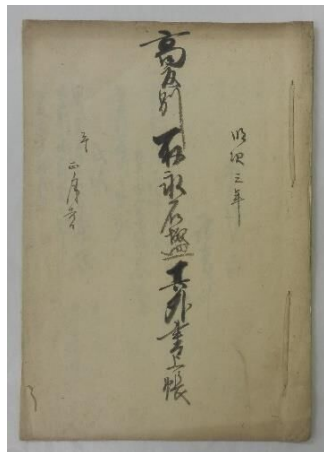 明治三年
高反別 取永石盛 其外書上帳
午 正月